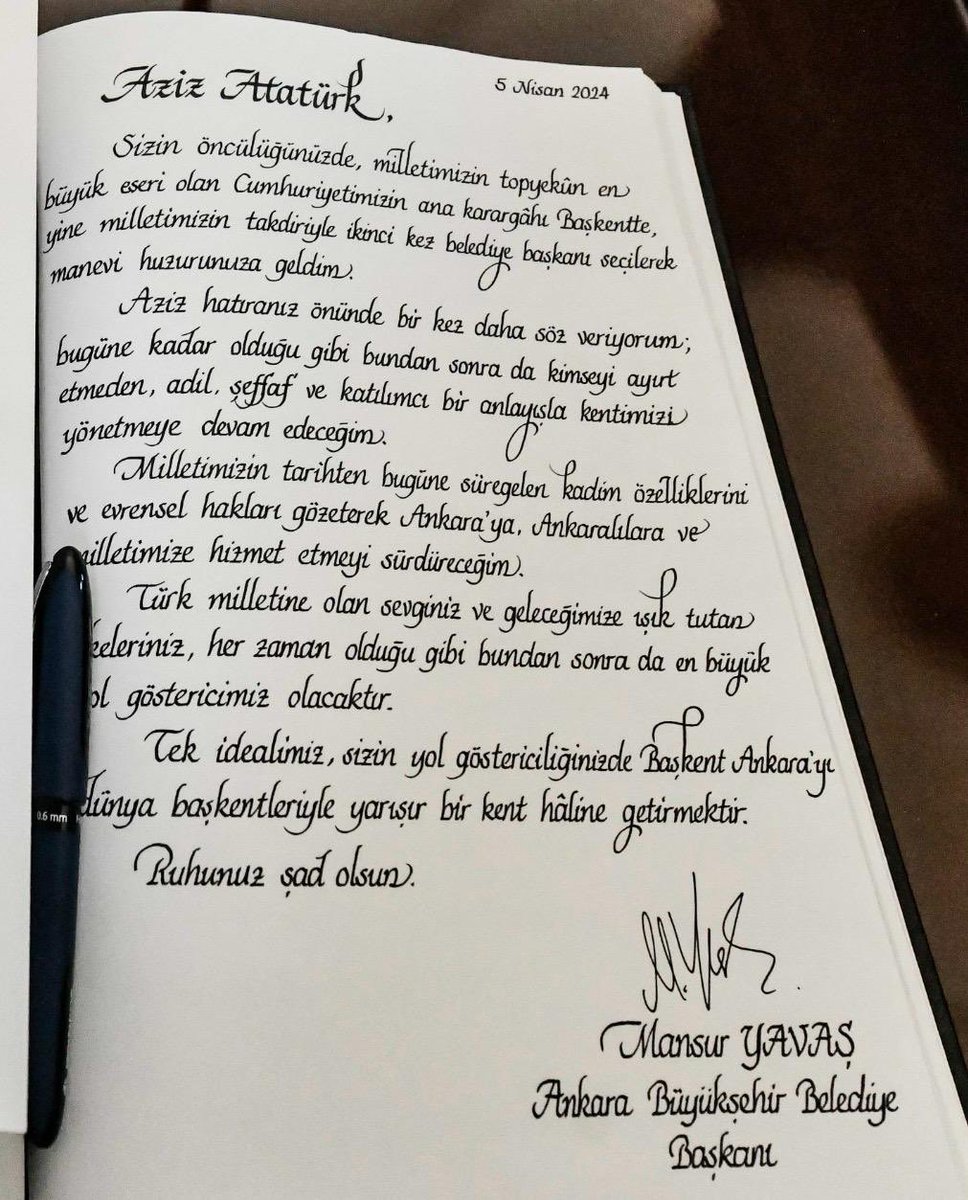 Aziz Atatürk,
5 Nisan 2024
Sizin öncülüğünüzde, milletimizin topyekûn en
büyük eseri olan Cumhuriyetimizin ana karargâhı Başkentte,
yine milletimizin takdiriyle ikinci kez belediye başkanı seçilerek
manevi huzurunuza geldim.
Aziz hatıranız önünde bir kez daha söz veriyorum;
bugüne kadar olduğu gibi bundan sonra da kimseyi ayırt
etmeden, adil, şeffaf ve katılımcı bir anlayışla kentimizi
yönetmeye devam edeceğim.
Milletimizin tarihten bugüne süregelen kadim özelliklerini
ve evrensel hakları gözeterek Ankara'ya, Ankaralılara ve
milletimize hizmet etmeyi sürdüreceğim.
Türk milletine olan sevginiz ve geleceğimize ışık tutan
keleriniz, her zaman olduğu gibi bundan sonra da en büyük
ol göstericimiz olacaktır.
Tek idealimiz, sizin yol göstericiliğinizde Başkent Ankara'yı
dünya başkentleriyle yarışır bir kent hâline getirmektir.
0.6 mm
Ruhunuz şad olsun.
Mansur YAVAŞ
Ankara Büyükşehir Belediye
Başkanı